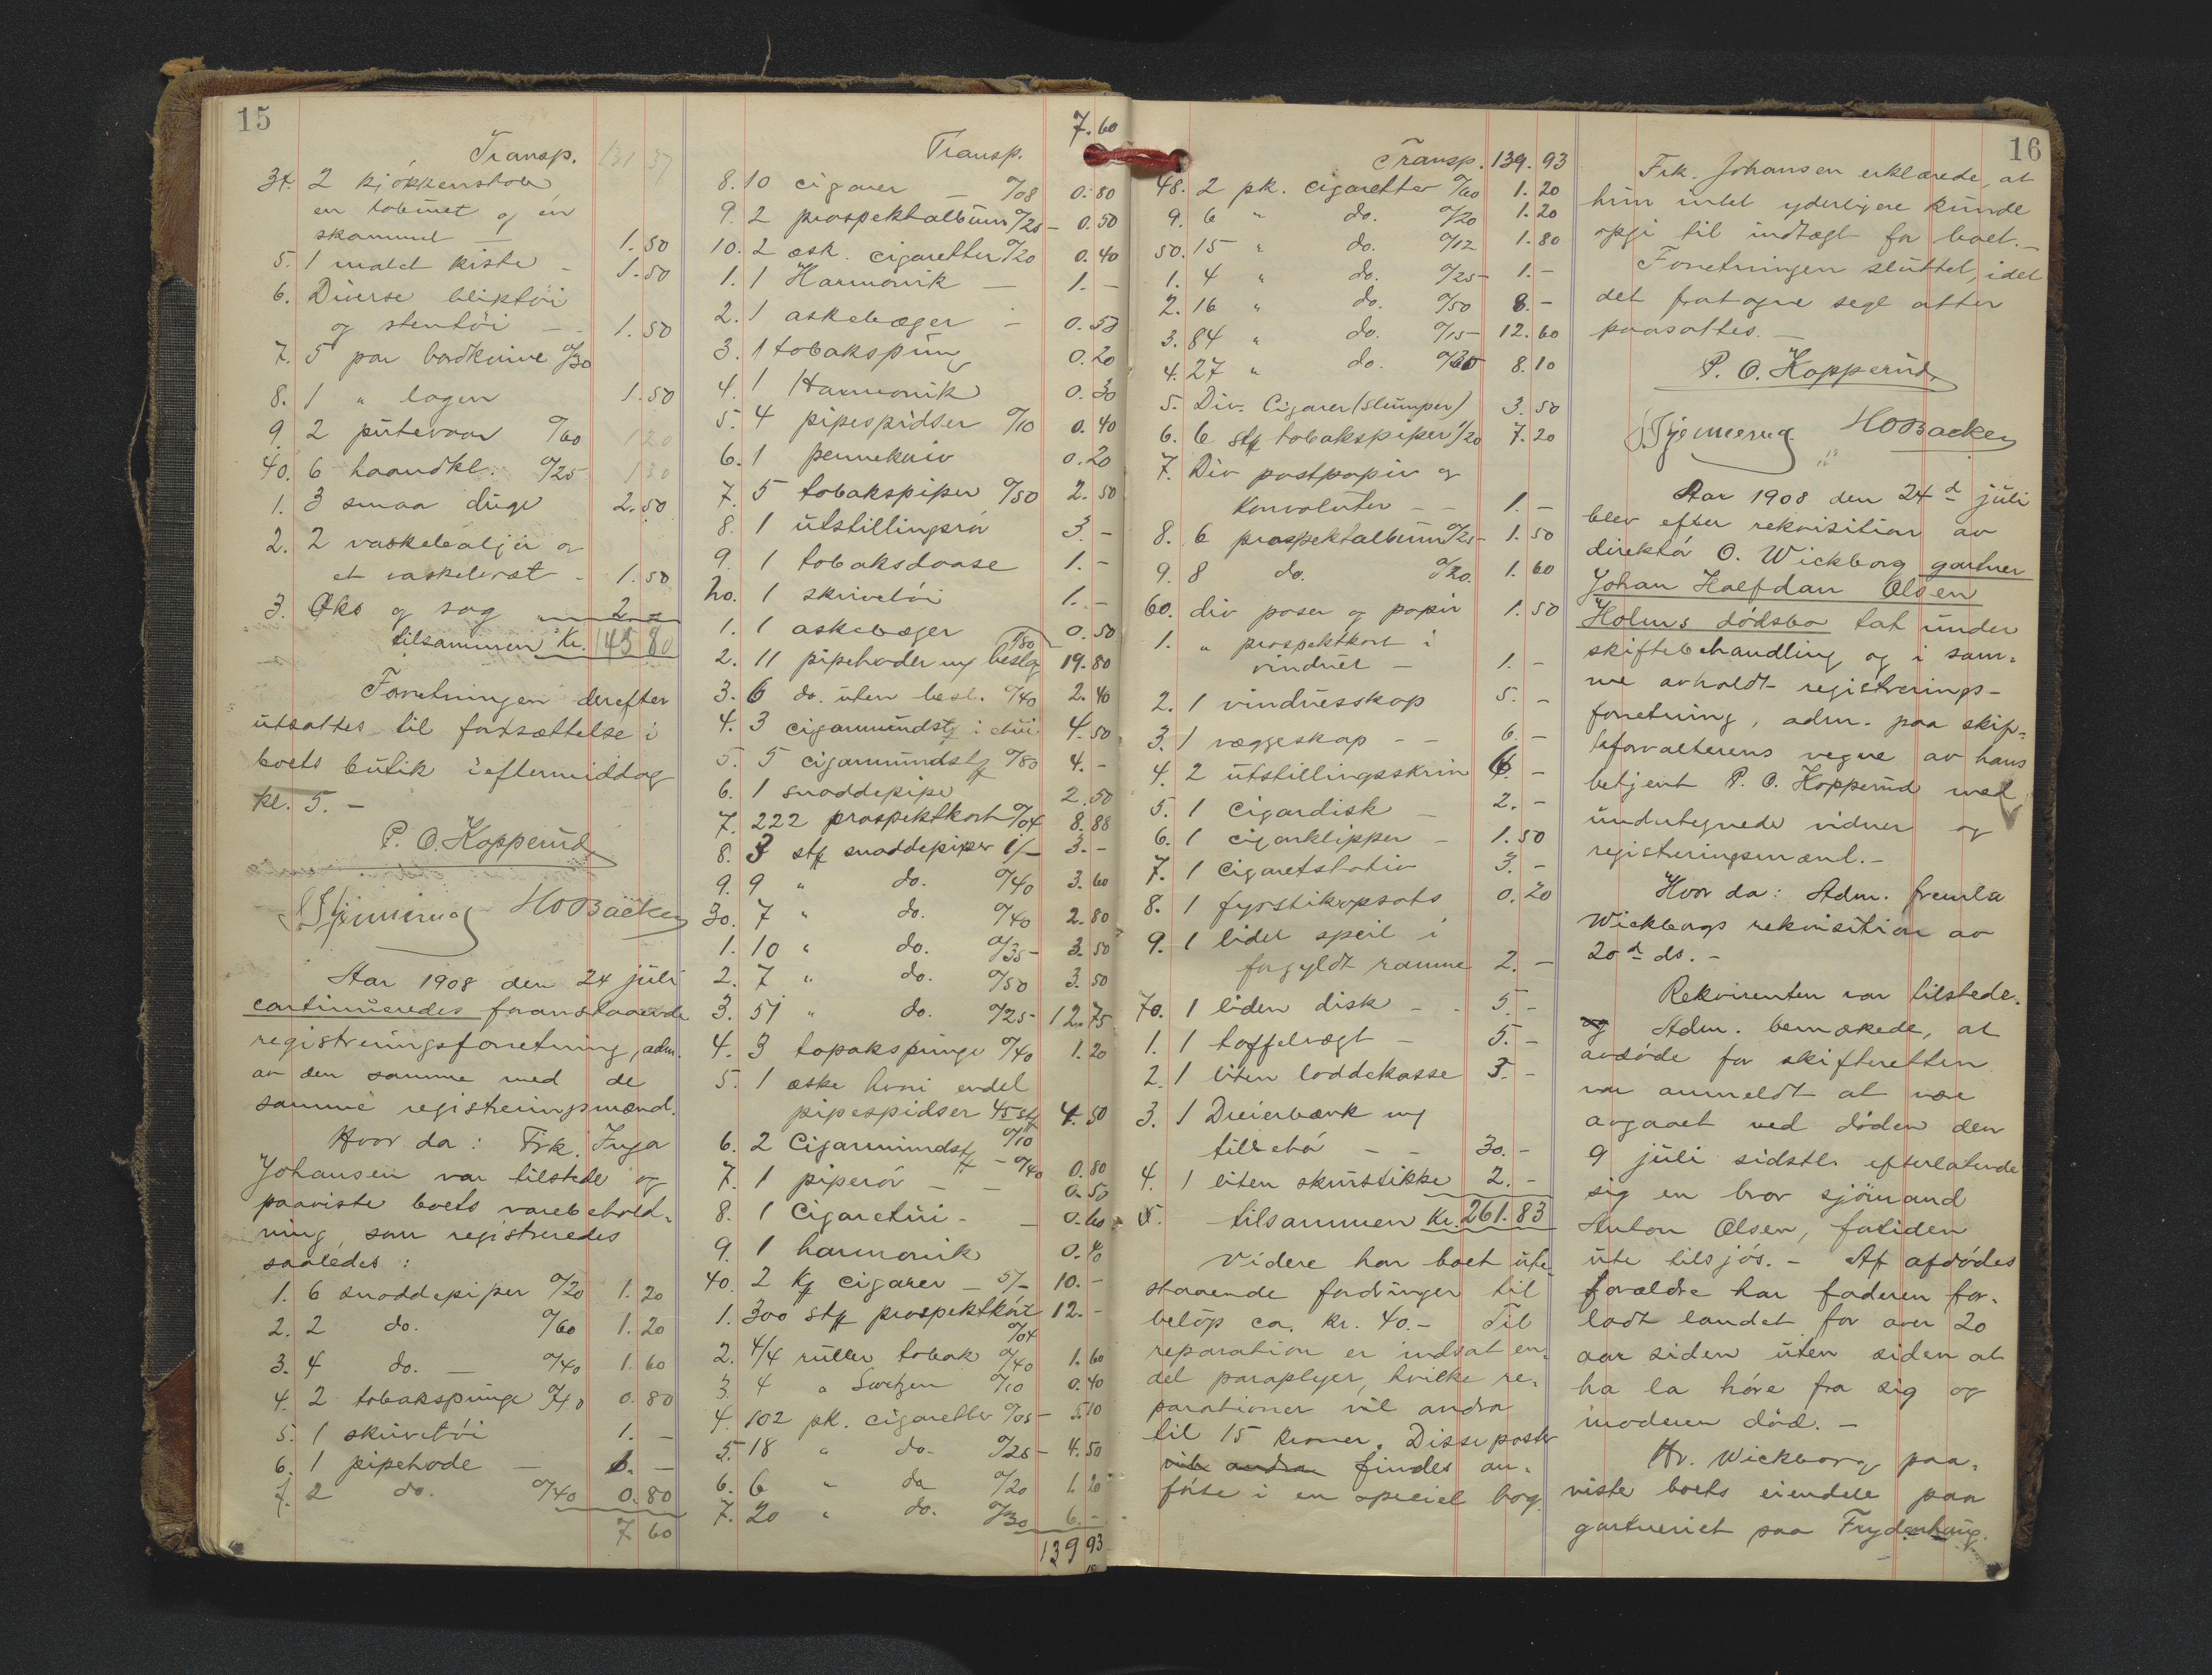 15
Transp. 131 37
34. 2 kjökkenstole
en taburet og en
skammel — 1.50
5. 1 malet kiste - 1.50
6. Diverse bliktöi
og stentöi — 1.50
7. 5 par bordknive º/30
8. 1 " lagen 1.50
9. 2 putevaar º/60 1 20
40. 6 haandkl. º/25 1 50
1. 3 smaa duge 2.50
2. 2 vaskebaljer og
et vaskebræt - 1.50
3. Öks og sag 2 -
tilsammen Kr. 145 80
Forretningen derefter
utsattes til fortsættelse i
boets butik i eftermiddag
kl. 5. -
P. O. Kopperud
HO Backen
Aar 1908 den 24 juli
continueredes foranstaaende
registreringsforretning, adm.
av den samme med de
samme registreringsmænd.
Hvor da: Frk. Inga
Johansen var tilstede og
paaviste boets varebehold-
ning, som registreredes
saaledes:
1. 6 snaddepiper º/20 1.20
2. 2 do. º/60 1.20
3. 4 do. — º/40 1.60
4. 2 tobakspunge º/40 0.80
5. 1 skrivetöi 1. -
6. 1 pipehode — 1. -
7. 2 do. º/40 0.80
7 60
Transp. 7.60
8. 10 cigarer — º/08 0.80
9. 2 prospektalbum º/25 - 0.50
10. 2 æsk. cigaretter º/20 0.40
1. 1 Harmonik — 1. -
2. 1 askebæger - 0.50
3. 1 tobakspung 0.20
4. 1 Harmonik 0.30
5. 4 pipespidser º/10 0.40
6. 1 pennekniv 0.20
7. 5 tobakspiper º/50 2.50
8. 1 utstillingsrör 3. -
9. 1 tobaksdaase 1. -
20. 1 skrivetöi 1. -
1. 1 askebæger 0.50
2. 11 pipehoder m/ beslag 1/80 19.80
3. 6 do. uten besl. º/40 2.40
4. 3 cigarmundst. i etui 4.50
5. 5 cigarmundst. º/80 4. -
6. 1 snaddepipe 2.50
7. 222 prospektkort º/04 8.88
8. 3 stk snaddepiper 1/- 3. -
9. 9 " do. º/40 3.60
30. 7 " do. º/40 2.80
1. 10 " do. º/35 - 3.50
2. 7 " do. º/50 3.50
3. 51 " do. º/25 - 12.75
4. 3 topakspunge º/40 1.20
5. 1 æske hvori endel
pipespidser 45 stk º/10 4.50
6. 2 Cigarmundst. - º/40 0.80
7. 1 piperör — — 0.50
8. 1 Cigaretui - — 0.60
9. 1 harmonik 0.40
40. 2 ks cigarer — 5/- 10. -
1. 300 stk prospektkort º/04 12. -
2. 4/4 ruller tobak º/40 1.60
3. 4 " º/10 0.40
4. 102 pk. cigaretter º/05 - 5.10
5. 18 " do. º/25 - 4.50
6. 6 " do º/20 1.20
7. 20 " do. º/30 6. -
139 93
16
Transp. 139.93
48. 2 pk. cigaretter º/60 1.20
9. 6 " do. º/20 1.20
50. 15 " do. º/12 1.80
1. 4 " do. º/25 - 1. -
2. 16 " do. º/50 8. -
3. 84 " do. º/15 - 12.60
4. 27 " do. º/30 8.10
5. Div. Cigarer (slumper) 3.50
6. 6 stk tobakspiper 1/20 7.20
7. Div postpapir og
Konvolutter — — 1. -
8. 6 prospektalbum º/25 - 1.50
9. 8 do. º/20. 1.60
60. div poser og papir 1.50
1. " prospektkort i
vinduet — 1. -
2. 1 vindusskap 5. -
3. 1 vægge­skap — — 6. -
4. 2 utstillingsskrin 6. -
5. 1 Cigardisk — 2. -
6. 1 cigarklipper - 1.50
7. 1 Cigaretstativ 3. -
8. 1 fyrstikopsats 0.20
9. 1 lidet speil i
forgyldt ramme 2. -
70. 1 liden disk — - 5. -
1. 1 taffelvægt — 5. -
2. 1 liten loddekasse 3. -
3. 1 Dreierbænk m/
tilbehör — — 30. -
4. 1 liten skrustikke 2. -
5. tilsammen Kr. 261.83
Videre har boet ute-
staaende fordringer til
belöp ca. kr. 40.- Til
reparation er indsat en-
del paraplyer, hvilke re-
parationer vil andra
til 15 kroner. Disse poster
vil andra findes an-
förte i en speciel bog.
Frk. Johansen erklærede, at
hun intet yderligere kunde
opgi til indtægt for boet. -
Forretningen sluttet, idet
det fratagne segl atter
paasattes. -
P. O. Kopperud
HO Backen
Aar 1908 den 24d juli
blev efter rekvisition av
direktör O. Wickborg gartner
Johan Halfdan Olsen
Holms dödsbo tat under
skiftebehandling og i sam-
me avholdt registrerings-
forretning, adm. paa skif-
teforvalterens vegne av hans
betjent P. O. Kopperud med
undertegnede vidner og
registreringsmænd. -
Hvor da: Adm. fremla
Wickborgs rekvisition av
20d ds. -
Rekvirenten var tilstede.
og Adm. bemærkede, at
avdöde for skifteretten
var anmeldt at være
avgaaet ved döden den
9 juli sidstl. efterlatende
sig en bror sjömand
Anton Olsen, fortiden
ute tilsjös. - Af afdödes
forældre har faderen for-
ladt landet for over 20
aar siden uten siden at
ha la höre fra sig og
moderen död. -
Hr. Wickborg paa-
viste boets eiendele paa
gartneriet paa Frydenhaug.